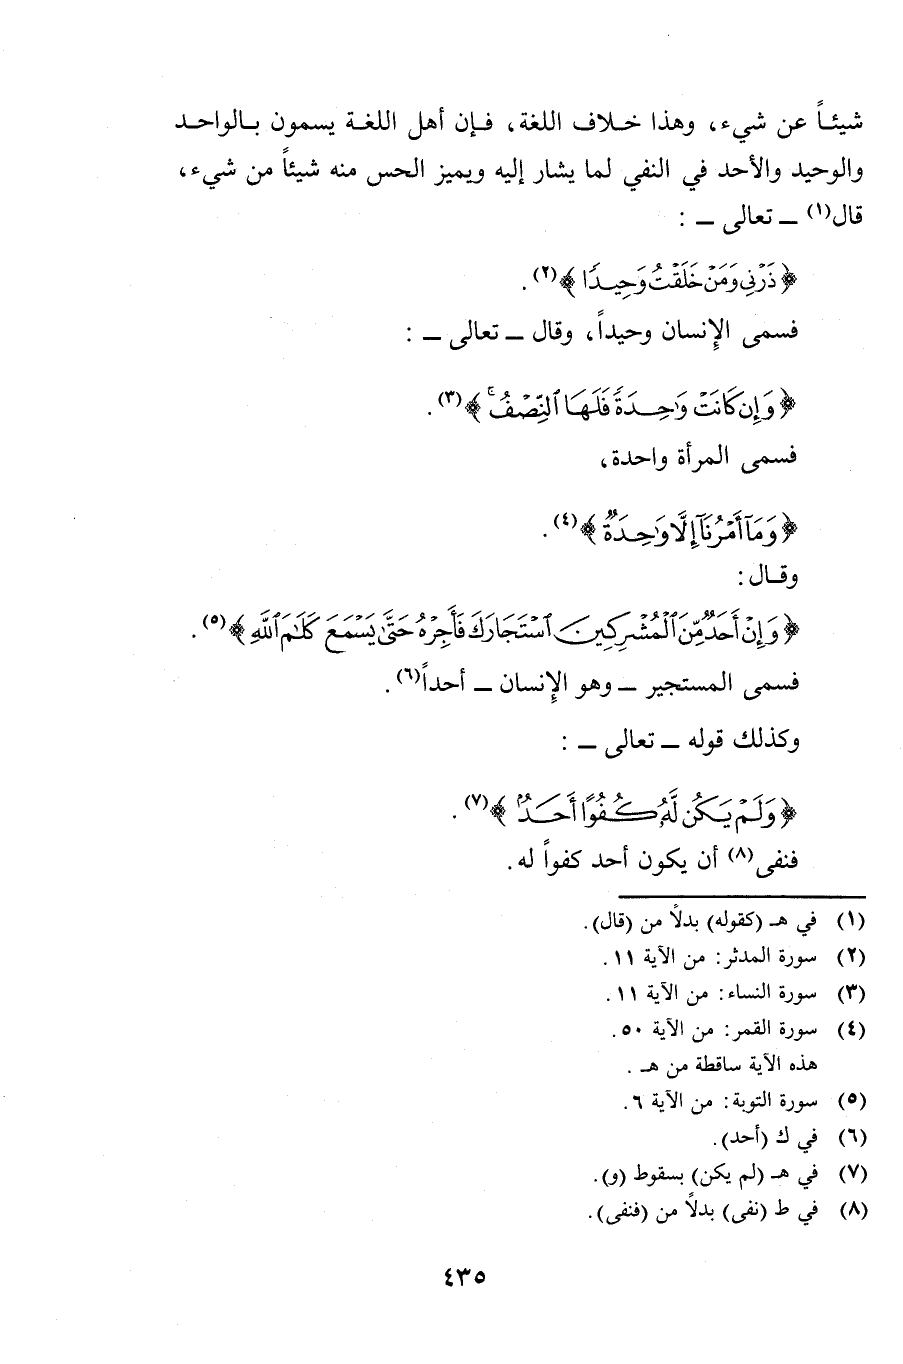 شيئاً عن شيء، وهذا خلاف اللغة، فإن أهل اللغة يسمون بالواحد
والوحيد والأحد في النفي لما يشار إليه ويميز الحس منه شيئاً من شيء،
قال(١) ــ تعالى ــ :
﴿ ذَرْنِي وَمَنْ خَلَقْتُ وَحِيدًا ﴾(٢).
فسمى الإنسان وحيداً، وقال ــ تعالى ــ :
﴿ وَإِن كَانَتْ وَٰحِدَةً فَلَهَا ٱلنِّصْفُ ۚ ﴾(٣).
فسمى المرأة واحدة،
﴿ وَمَآ أَمْرُنَآ إِلَّا وَٰحِدَةٌ ﴾(٤).
وقال:
﴿ وَإِنْ أَحَدٌ مِّنَ ٱلْمُشْرِكِينَ ٱسْتَجَارَكَ فَأَجِرْهُ حَتَّىٰ يَسْمَعَ كَلَٰمَ ٱللَّهِ ﴾(٥).
فسمى المستجير ــ وهو الإنسان ــ أحداً(٦).
وكذلك قوله ــ تعالى ــ :
﴿ وَلَمْ يَكُن لَّهُۥ كُفُوًا أَحَدٌۢ ﴾(٧).
فنفى(٨) أن يكون أحد كفواً له.
(١) في هـ (كقوله) بدلاً من (قال).
(٢) سورة المدثر: من الآية ١١.
(٣) سورة النساء: من الآية ١١.
(٤) سورة القمر: من الآية ٥٠.
هذه الآية ساقطة من هـ .
(٥) سورة التوبة: من الآية ٦.
(٦) في ك (أحد).
(٧) في هـ (لم يكن) بسقوط (و).
(٨) في ط (نفى) بدلاً من (فنفى).
٤٣٥